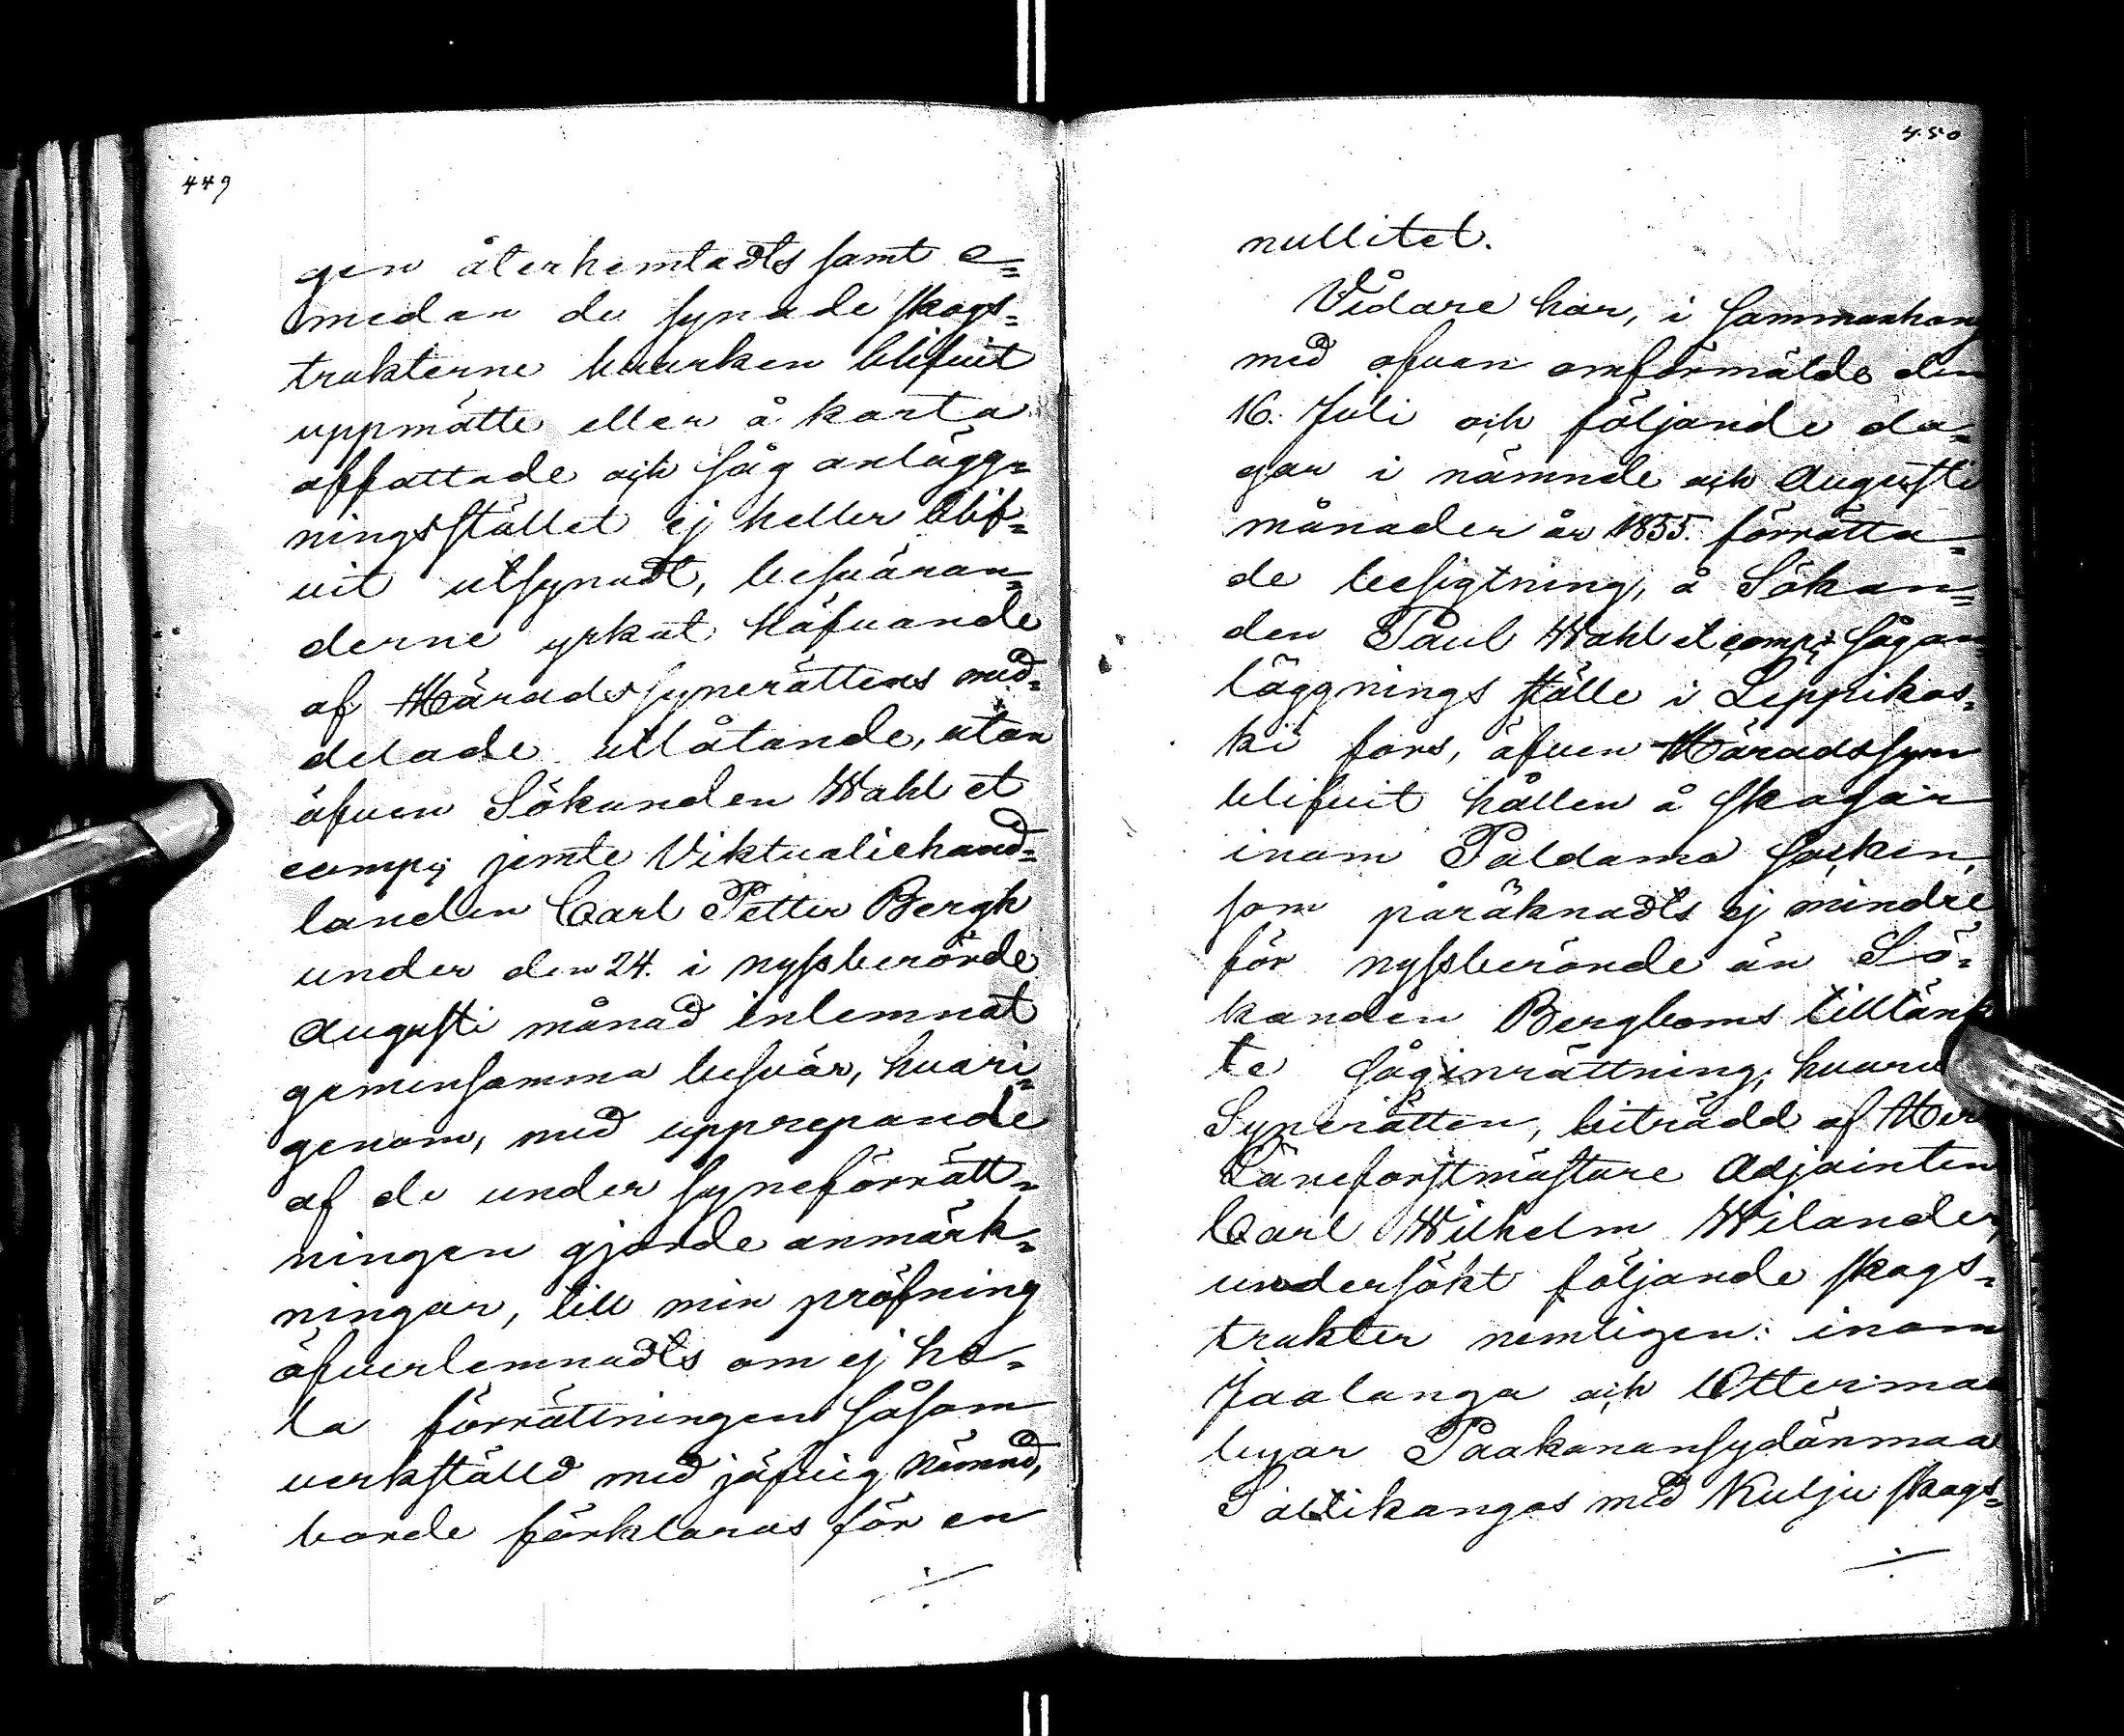 449
gen återhemtadts samt e=
medan de synade skogs=
trakterne hvarken blifvit
uppmätte eller å karta
affattade och såg anlägg=
ningsstället ej heller blif=
vit utsynadt, besväran=
derne yrkat häfvande
af Häradssynerättens med=
delade utlåtande, utan
äfven Sökanden Wahl et
comp: jemte Viktualiehand=
landen Carl Petter Bergh
under den 24. i nyssberörde
Augusti månad inlemnat
gemensamma besvär, hvari=
genom, med upprepande
af de under syneförrätt=
ningen gjorde anmärk=
ningar, till min pröfning
öfverlemnadts om ej he=
la förrättningen såsom
verkställd med jäfvig Nämnd,
borde förklaras för en
450
nullitet.
Vidare har, i sammanhang
med ofvan omförmälde den
16. Juli och följande da=
gar i nämnde och Augusti
månader år 1855. förrätta=
de besigtning, å Sökan=
den Paul Wahl et comp: sågan
läggnings ställe i Leppikos=
ki fors, äfven Häradssyn
blifvit hållen å skogar
inom Paldamo socken,
som påräknadts ej mindre
för nyssberörde än Sö=
kanden Bergboms tilltänk
te såginrättning, hvarvid
Synerätten, biträdd af Herr
Läneforstmästare Adjointen
Carl Wilhelm Wilander,
undersökt följande skogs=
trakter nemligen: inom
Jaalanga och Ottermaa
byar Paakanansydänmaa
Saltikangas med Kulju skogs=